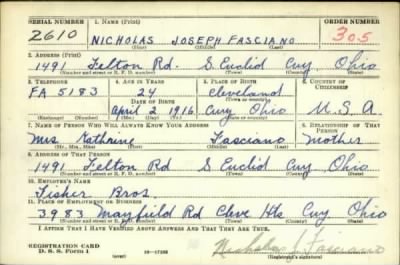 SERIAL NUMBER 1. NAME (Print) ORDER NUMBER
2610 NICHOLAS JOSEPH FASCIANO 305
(First) (Middle) (Last)
2. ADDRESS (Print)
1491 Felton Rd. S. Euclid Cuy. Ohio
(Number and street or R. F. D. number) (Town) (County) (State)
3. TELEPHONE 4. AGE IN YEARS 5. PLACE OF BIRTH 6. COUNTRY OF CITIZENSHIP
FA 5183 24 Cleveland
DATE OF BIRTH (Town or county)
April 2 1916 Cuy Ohio U.S.A
(Exchange) (Number) (Mo.) (Day) (Yr.) (State or country)
7. NAME OF PERSON WHO WILL ALWAYS KNOW YOUR ADDRESS 8. RELATIONSHIP OF THAT PERSON
Mrs Fasciano Mother
(Mr., Mrs., Miss) (First) (Middle) (Last)
9. ADDRESS OF THAT PERSON
1491 Felton Rd S Euclid Cuy. Ohio
(Number and street or R. F. D. number) (Town) (County) (State)
10. EMPLOYER'S NAME
Fisher Bros.
11. PLACE OF EMPLOYMENT OR BUSINESS
3983 Mayfield Rd Cleve Hts Cuy Ohio
(Number and street or R. F. D. number) (Town) (County) (State)
I AFFIRM THAT I HAVE VERIFIED ABOVE ANSWERS AND THAT THEY ARE TRUE.
REGISTRATION CARD
D. S. S. Form 1 Nicholas J Fasciano
(Registrant's signature)